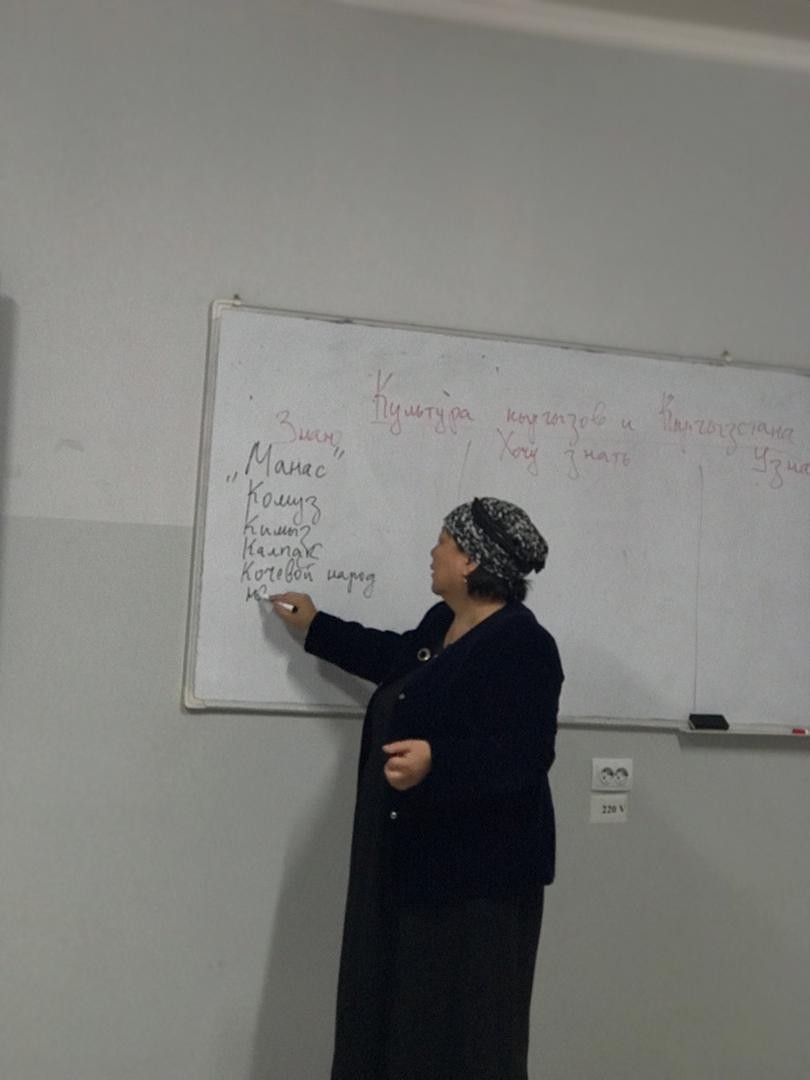 Культура кыргызов и Кыргызстана
Знаю
Хочу знать
Узна
„Манас"
Комуз
Кимыз
Калпак
Кочевой народ
220 V